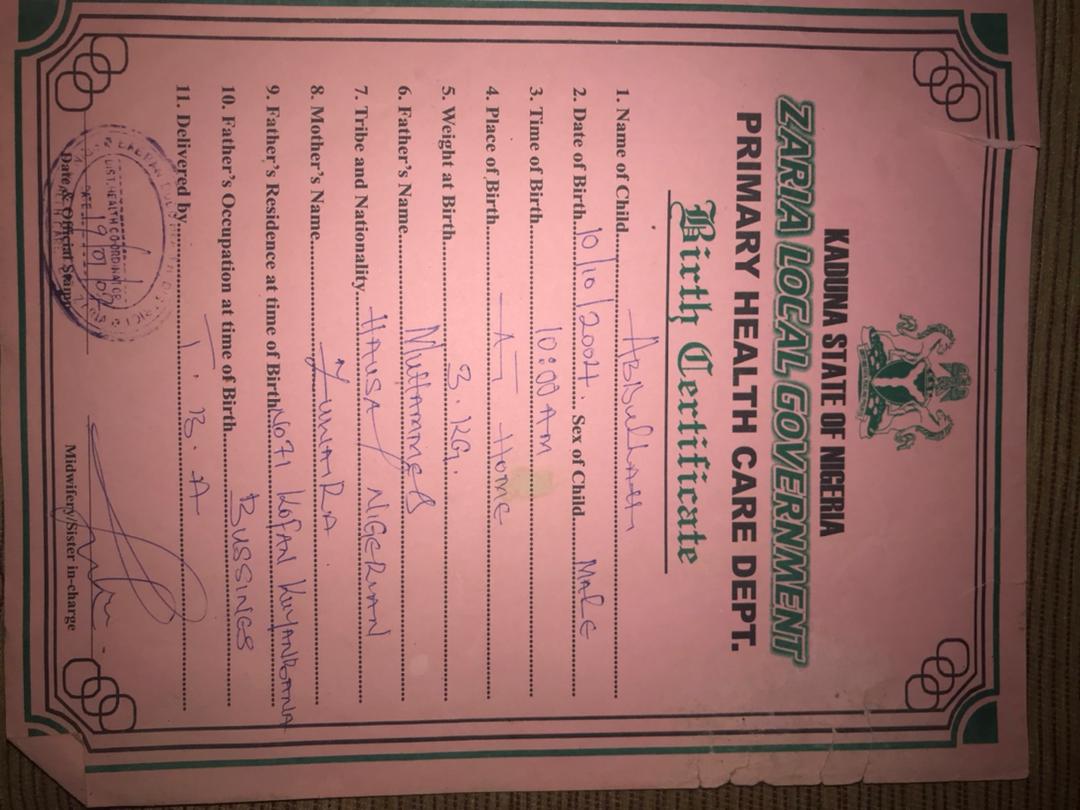 KADUNA STATE OF NIGERIA
ZARIA LOCAL GOVERNMENT
PRIMARY HEALTH CARE DEPT.
Birth Certificate
1. Name of Child ABDULLAHI
2. Date of Birth 10/10/2004. Sex of Child Male
3. Time of Birth 10:00 AM
4. Place of Birth AT Home
5. Weight at Birth 3.KG.
6. Father's Name MUHAMMED
7. Tribe and Nationality HAUSA/NIGERIAN
8. Mother's Name
9. Father's Residence at time of Birth NO71 KOFAN KUYANBANA
10. Father's Occupation at time of Birth BUSSINES
11. Delivered by T.B.A
Date & Official Stamp
Midwifery/Sister in-charge